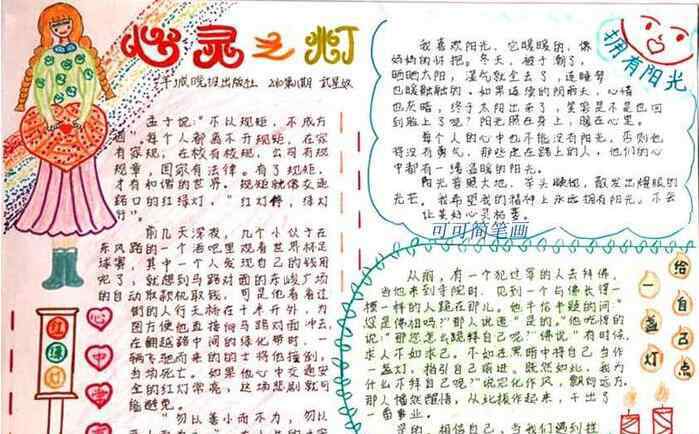 心灵之灯
拥有阳光
我喜欢阳光，它暖暖的，像
妈妈的怀抱。冬天，被子潮了，
晒晒太阳，湿气就全去了，连睡梦
也暖融融的。如果连续的阴雨天，心情
也灰暗，终于太阳出来了，笑容是不是也回
到脸上了呢？阳光照在身上，暖在心里。
每个人的心中也不能没有阳光，否则他
将没有勇气，那些走在路上的人，他们的心
中都有一缕温暖的阳光。
阳光普照大地，
芒。我希望我的精神上永远拥有阳光。不会
让美好心灵枯萎。
可可简笔画
孟子说：“不以规矩，不成方
圆”。每个人都离不开规矩，在家
有家规，在校有校规，公司有规
规章，国家有法律。有了规矩，
才有和谐的世界。规矩就像交通
路口的红绿灯，“红灯停，绿灯
行”。
前几天深夜，几个小伙子在
东风路的一个酒吧里观看世界杯足
球赛，其中一个人发现自己的钱用
完了，就想到马路对面的东峻广场
的自动取款机取钱，可是他看看过
街的人行天桥在十米开外，为
图方便他直接向马路对面冲去，
在翻越路中间的绿化带时，一
辆飞驰而来的的士将他撞倒，
当场死亡。如果他心中交通安
全的红灯常亮，这场悲剧就可
能避免。
“勿以善小而不为，勿以
红
绿
灯
心
中
常
亮
给
自
己
一
盏
灯
从前，有一个犯过罪的人去拜佛，
当他来到寺院时，见到一个与佛长得一
模一样的人跪在那儿。他半信半疑的问“
您是佛祖吗？”那人说道“是的。”他吃惊的
说“那您怎么跪拜自己呢？”佛说“有时候，
求人不如求己。不如在黑暗中将自己当作
一盏灯，指引自己前进。既然如此，我为
什么不拜自己呢？”说完化作风，飘向远方。
那人幡然醒悟，从此振作起来，干出了
一番事业。
是的，相信自己，当我们遇到挫